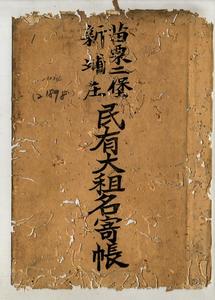 苗栗二堡
新埔庄
民有大租名寄帳